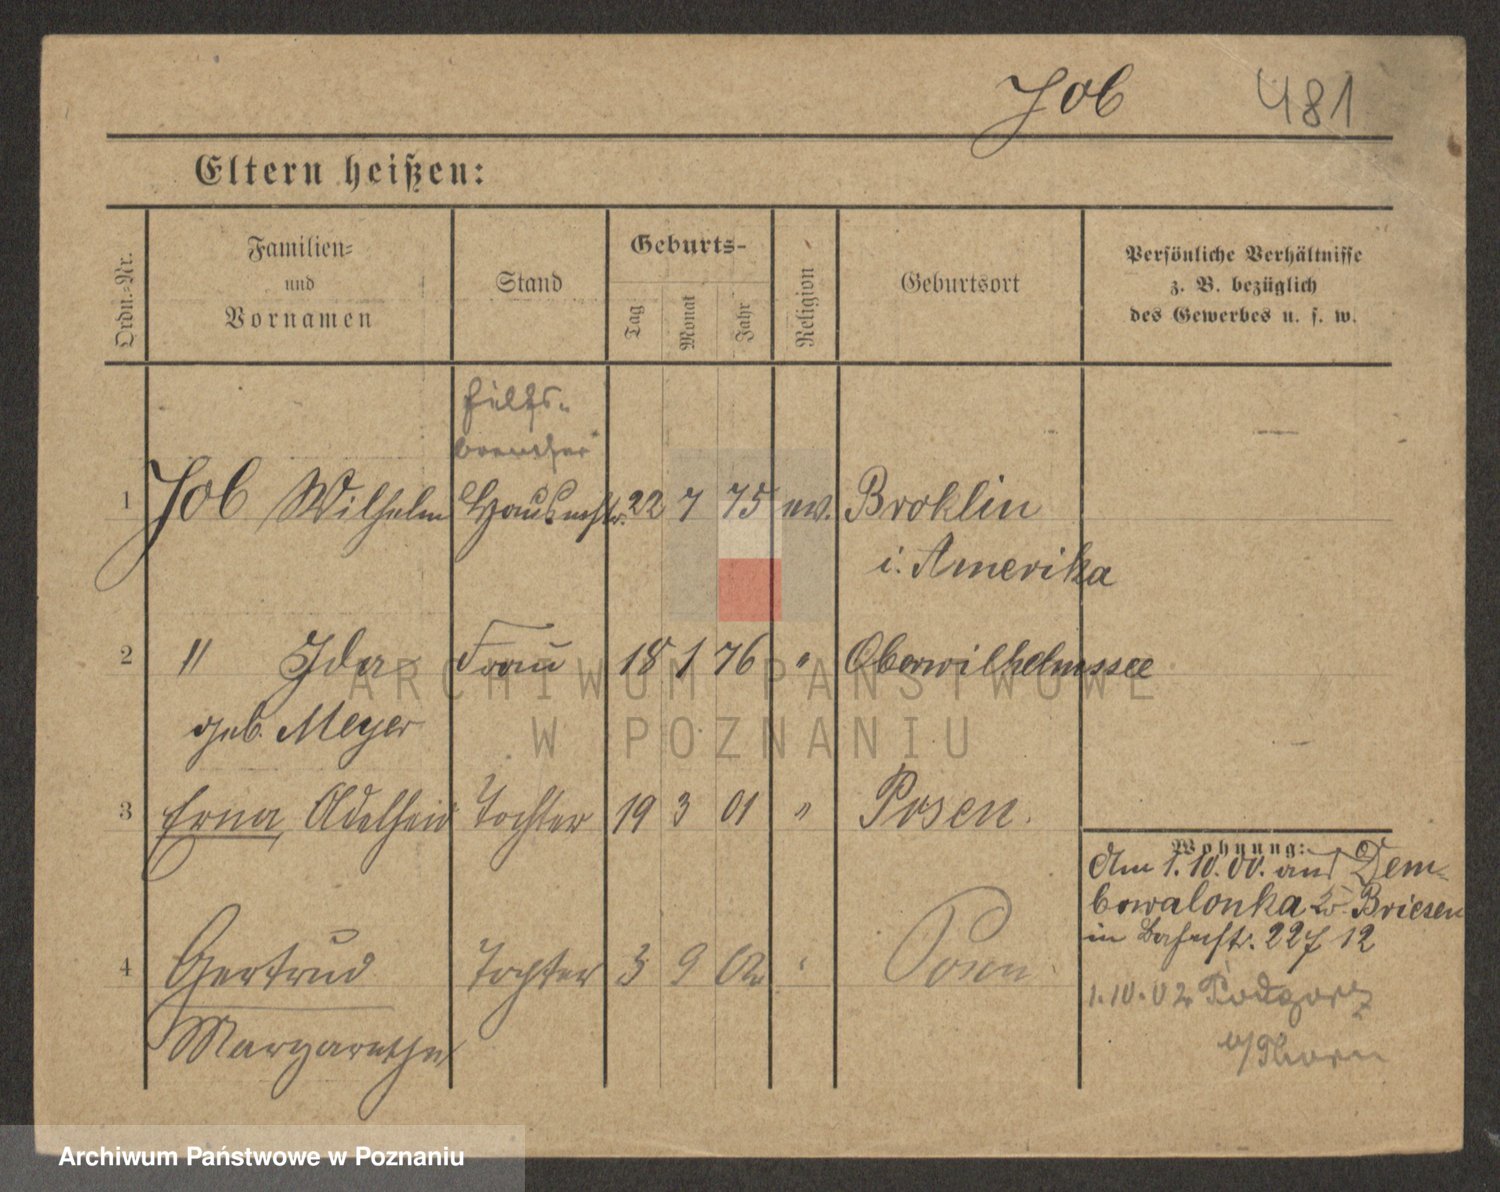 Job 481
Eltern heißen:
Ordn.-Nr.
Familien-
und
Vornamen
Stand
Geburts-
Tag
Monat
Jahr
Religion
Geburtsort
Persönliche Verhältnisse
z. B. bezüglich
des Gewerbes u. s. w.
Hilfs-
bremser
1 Job Wilhelm Hausmstr. 22 7 75 ev. Broklin
i. Amerika
2 " Ida Frau 18 1 76 " Oberwilhelmssee
geb. Meyer
3 Erna Adelheid Tochter 19 3 01 " Posen.
Wohnung:
Am 1.10.00. aus Dem-
bowalonka Kr. Briesen
in Bahnstr. 227 12
4 Gertrud Tochter 3 9 02 " Posen
Margarethe
1.10.02 Podgorz
b/Thorn
ARCHIWUM PAŃSTWOWE
W POZNANIU
Archiwum Państwowe w Poznaniu